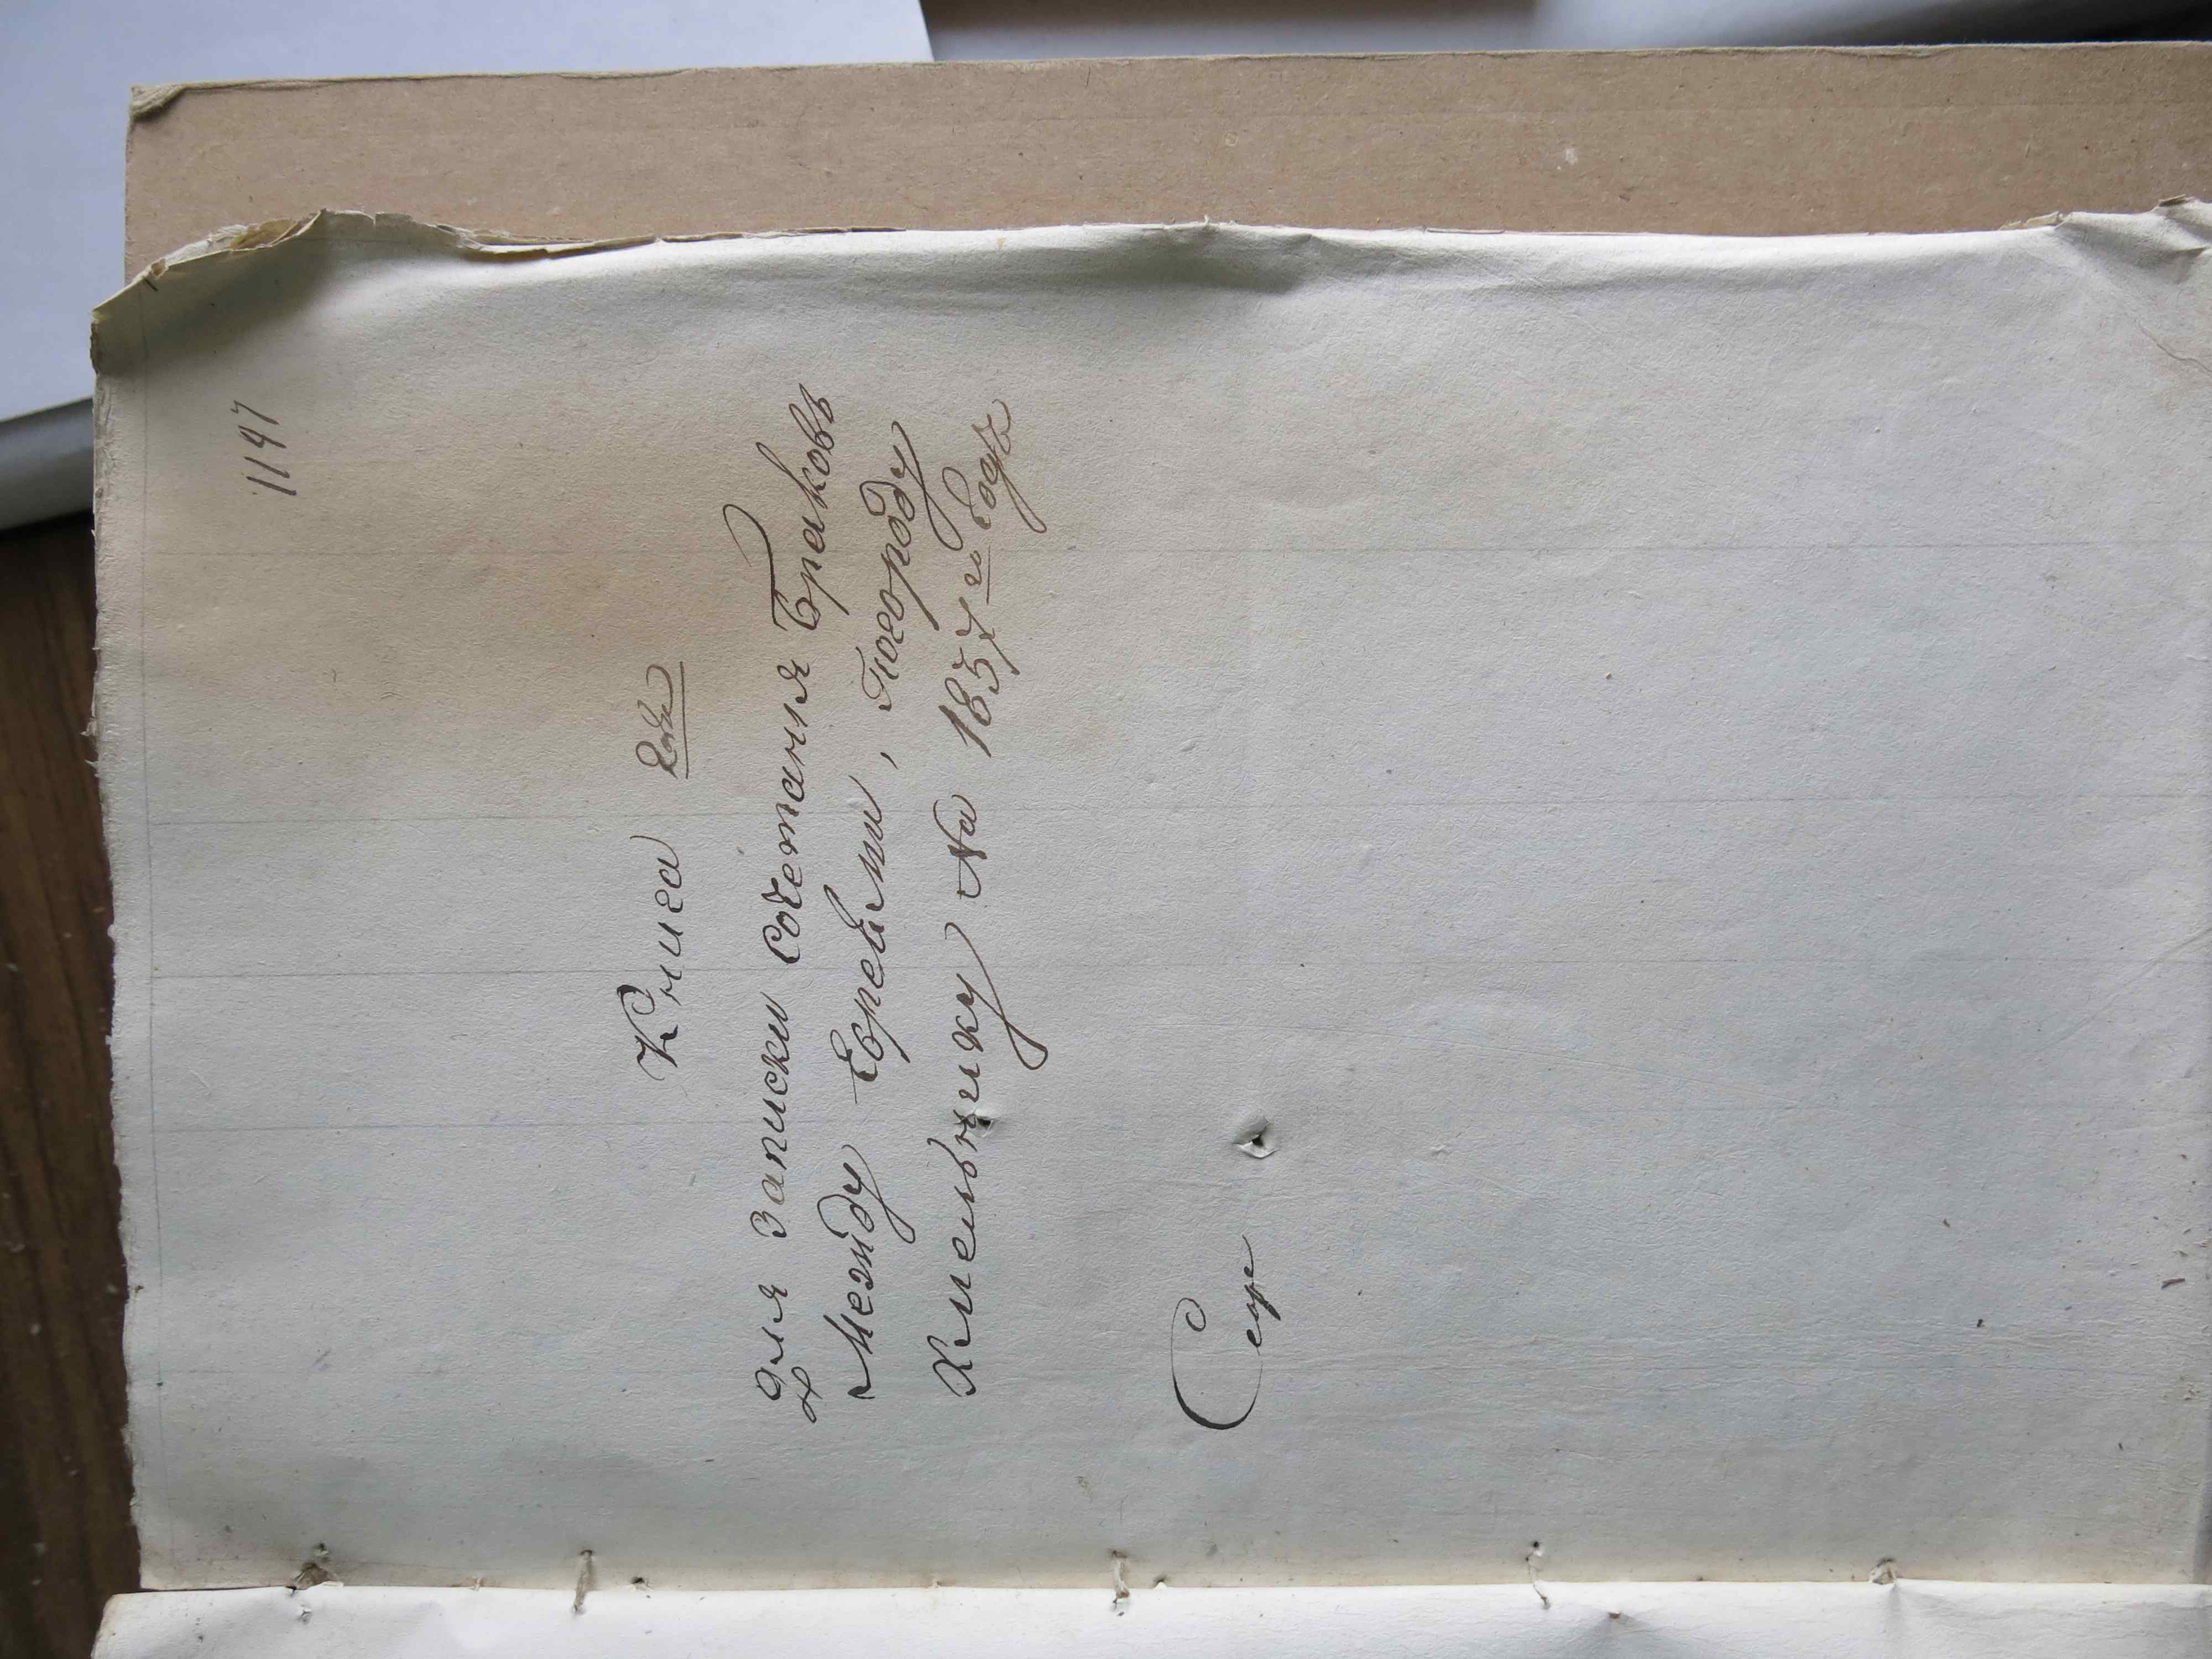 1147
Книга 2я
Для Записки Сочетания Браковъ
Между Евреями, Погороду
Хмельнику На 1857й Годъ